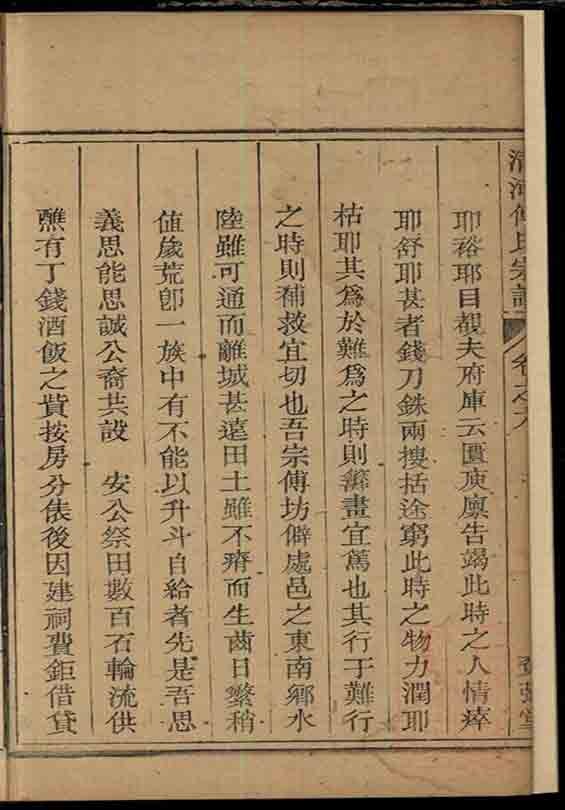 清河傅氏宗譜 卷之
耶裕耶目覩夫府庫云匱庾廩告竭此時之人情瘁
耶舒耶甚者錢刀銖兩搜括途窮此時之物力潤耶
枯耶其爲於難爲之時則籌畫宜篤也其行于難行
之時則補救宜切也吾宗傅坊僻處邑之東南鄉水
陸雖可通而離城甚遠田土雖不瘠而生齒日繁稍
值歲荒卽一族中有不能以升斗自給者先是吾思
義思能思誠公裔共設 安公祭田數百石輪流供
醮有丁錢酒飯之貲按房分俵後因建祠費鉅借貸